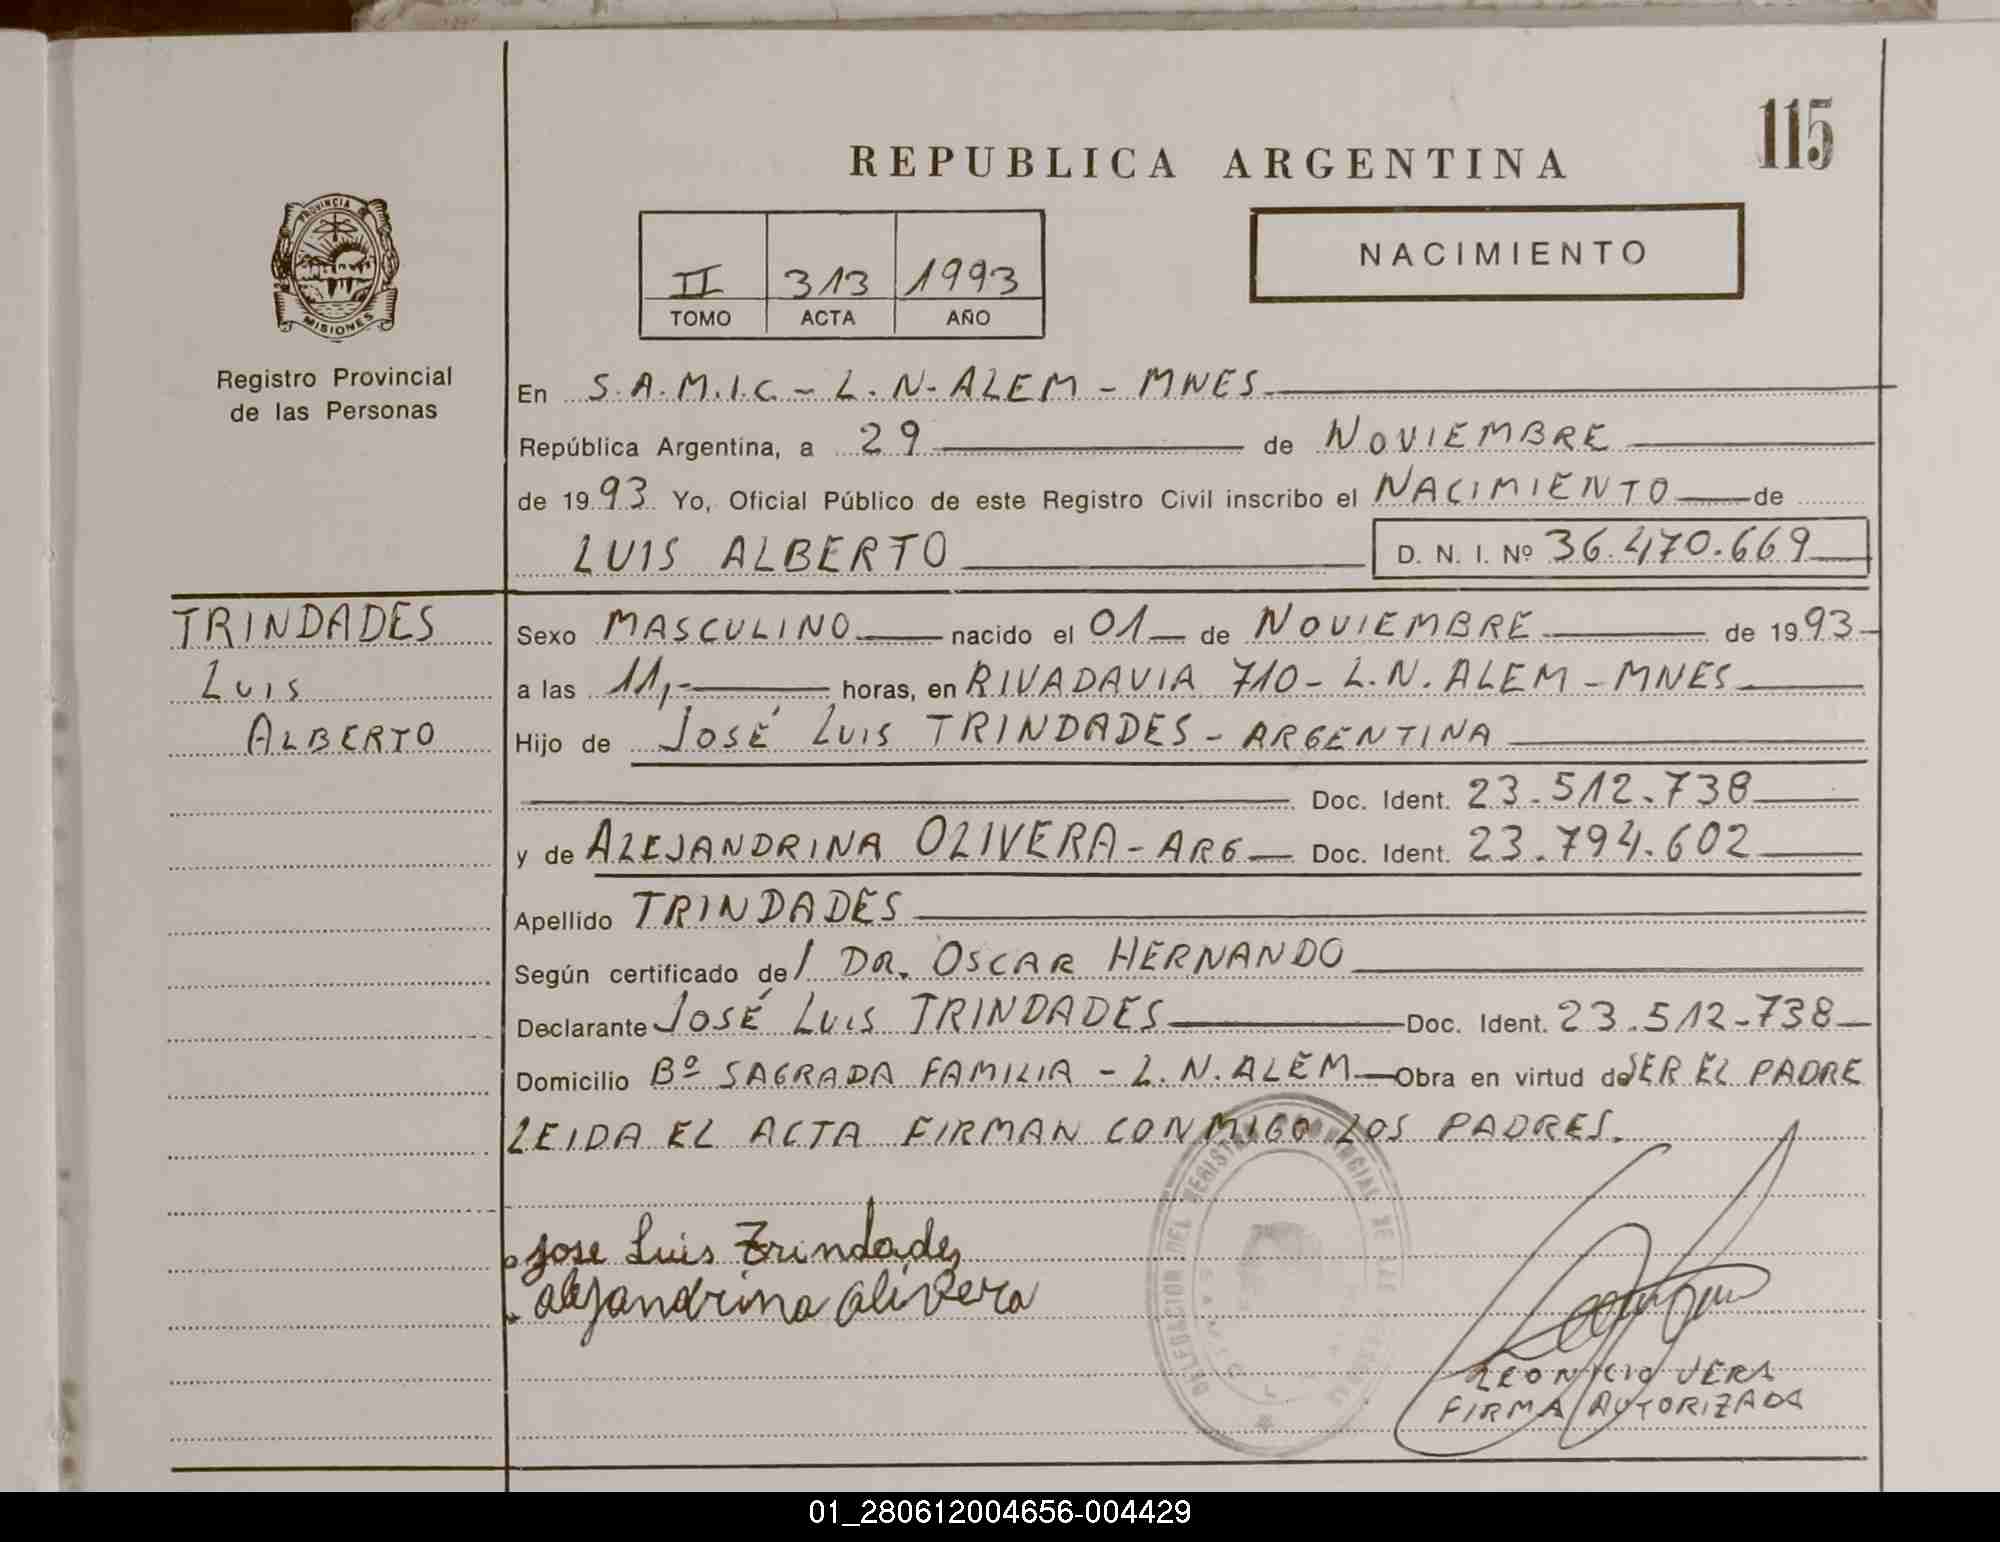 115
REPUBLICA ARGENTINA
PROVINCIA DE
MISIONES
Registro Provincial
de las Personas
II 313 1993
TOMO ACTA AÑO
NACIMIENTO
En S.A.M.I.C. - L. N. ALEM - MNES
República Argentina, a 29 de NOVIEMBRE
de 1993 Yo, Oficial Público de este Registro Civil inscribo el NACIMIENTO de
LUIS ALBERTO D. N. I. Nº 36.470.669
TRINDADES
LUIS
ALBERTO
Sexo MASCULINO nacido el 01 de NOVIEMBRE de 1993
a las 11,- horas, en RIVADAVIA 710 - L.N. ALEM - MNES
Hijo de JOSÉ LUIS TRINDADES - ARGENTINA
Doc. Ident. 23.512.738
y de ALEJANDRINA OLIVERA - ARG Doc. Ident. 23.794.602
Apellido TRINDADES
Según certificado de / DR. OSCAR HERNANDO
Declarante JOSÉ LUIS TRINDADES Doc. Ident. 23.512.738
Domicilio Bº SAGRADA FAMILIA - L.N. ALEM Obra en virtud de SER EL PADRE
LEIDA EL ACTA FIRMAN CONMIGO LOS PADRES.
Jose Luis Trindades
alejandrina olivera
DELEGACION DEL REGISTRO PROVINCIAL DE LAS
FIRMA AUTORIZADA
01_280612004656-004429